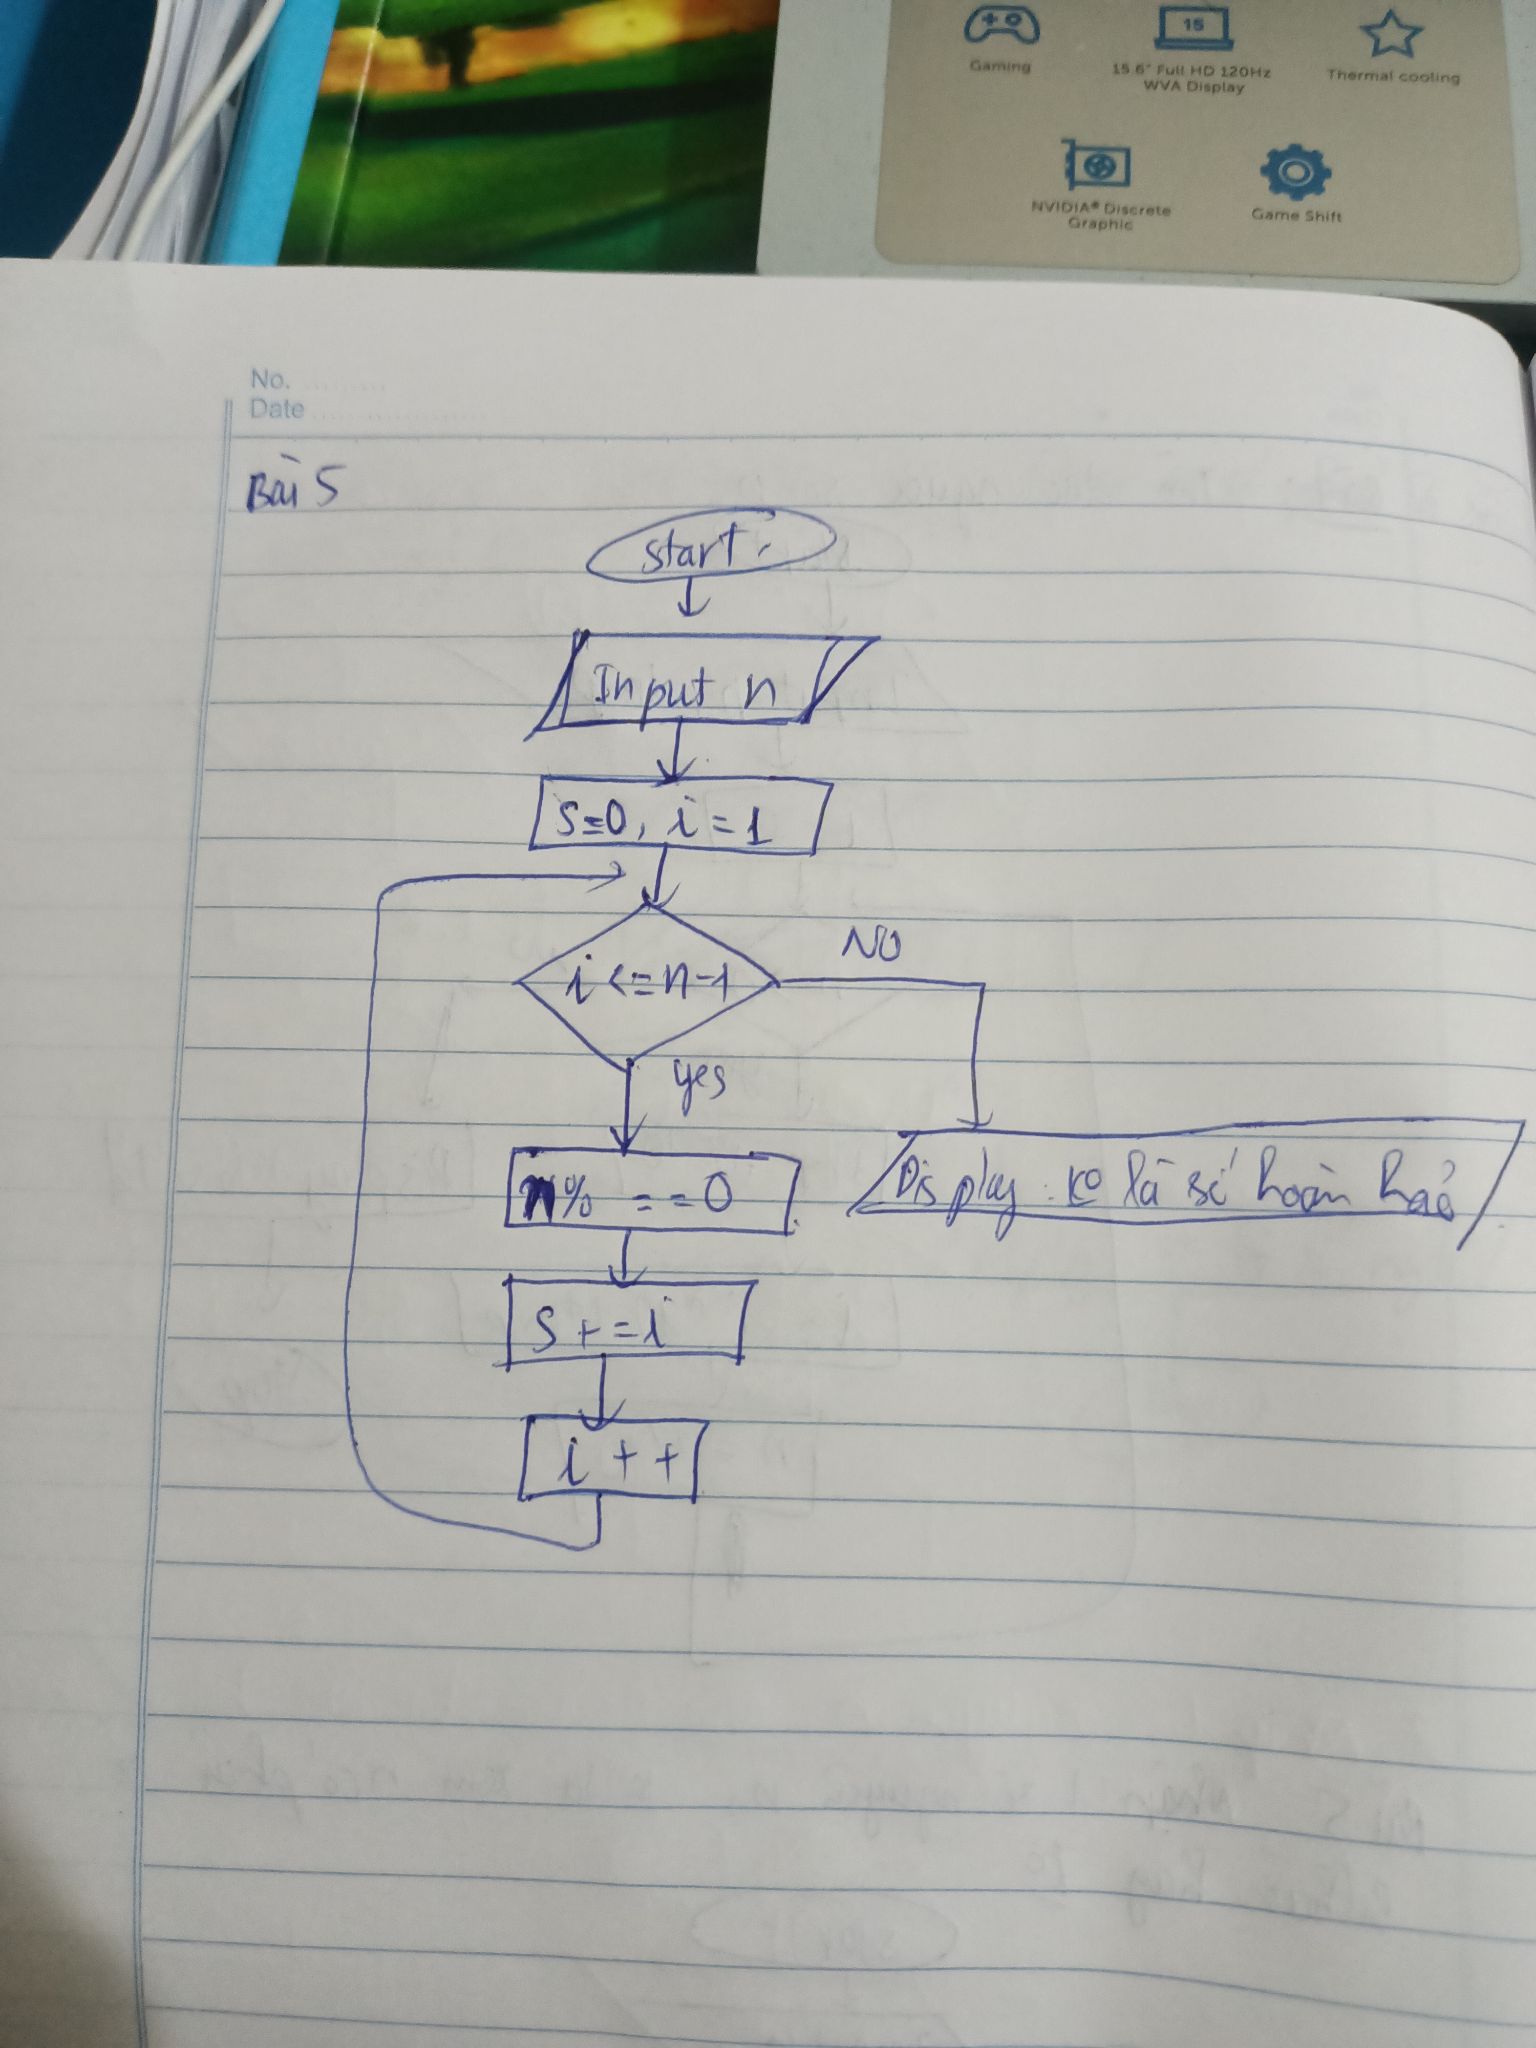 Gaming
15
15.6" Full HD 120Hz
WVA Display
Thermal cooling
NVIDIA® Discrete
Graphic
Game Shift
No.
Date
Bài 5
start
Input n
S=0, i=1
i<=n-1
NO
yes
n% ==0
Display: ko là số hoàn hảo
S+=i
i++